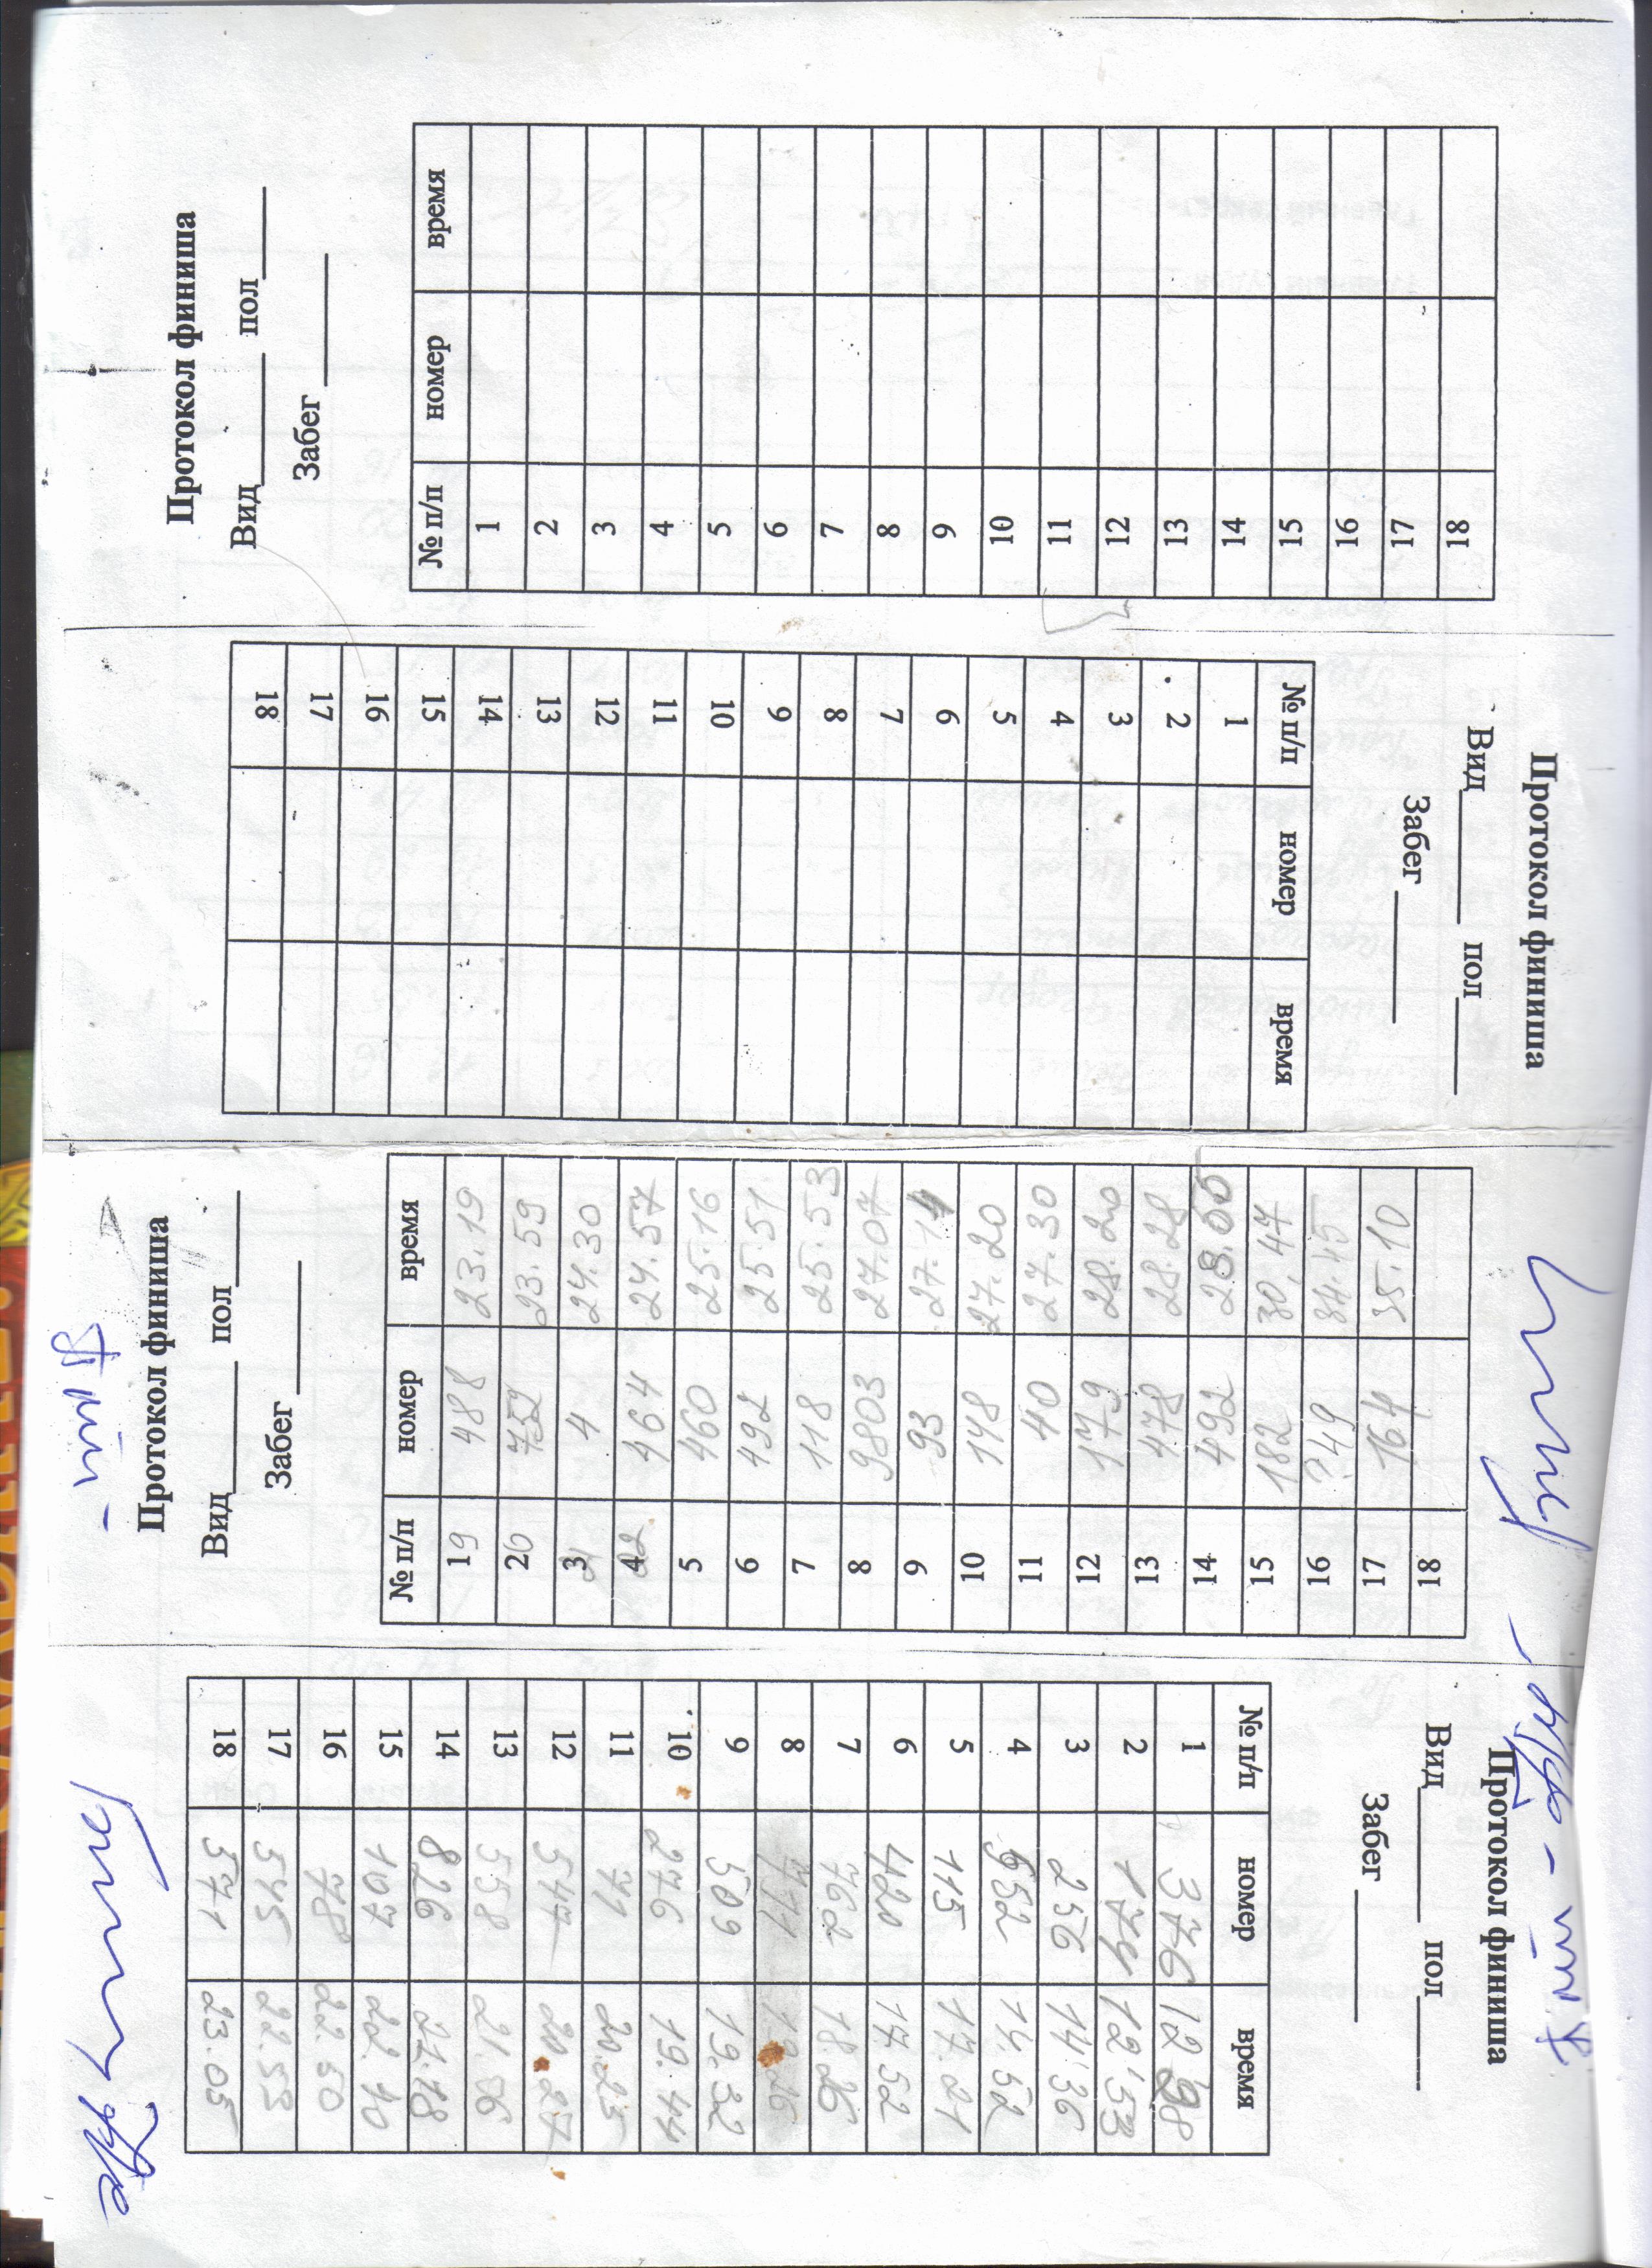 Протокол финиша
Вид пол
Забег
№ п/п номер время
1
2
3
4
5
6
7
8
9
10
11
12
13
14
15
16
17
18
Протокол финиша
Вид пол
Забег
№ п/п номер время
1
2
3
4
5
6
7
8
9
10
11
12
13
14
15
16
17
18
Протокол финиша
Вид пол
Забег
№ п/п номер время
19 488 23.19
20 752 23.59
3 4 24.30
4 464 24.57
5 460 25.16
6 492 25.51
7 118 25.53
8 9803 27.07
9 93 27.14
10 148 27.20
11 40 27.30
12 179 28.20
13 478 28.28
14 492 28.50
15 182 30,47
16 ?49 34.45
17 164 35.10
18
Протокол финиша
Вид пол
Забег
№ п/п номер время
1 376 12
2 174 12'53
3 256 14'36
4 652 14.52
5 115 17.21
6 420 17.52
7 762 18.26
8 771 19.26
9 509 19.32
10 276 19.44
11 71 20.25
12 547 20.27
13 558 21.06
14 826 21.18
15 107 22.10
16 78 22.50
17 545 22.53
18 571 23.05